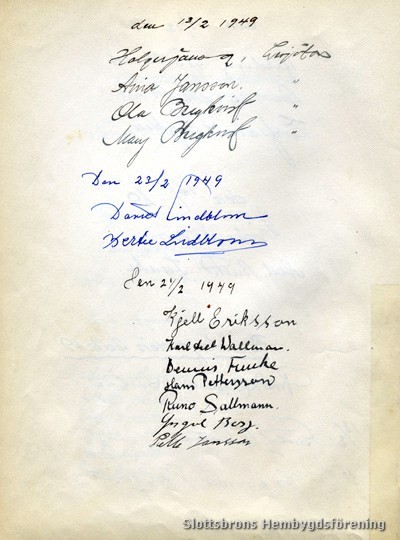 den 13/2 1949
Aina Jansson. "
Ola Bergkvist "
Mary Bergkvist "
Den 23/2 1949
David Lindblom
Lidblom
Den 27/2 1949
Kjell Eriksson
Karl Axel Wallman.
Dennis Funke
Hans Pettersson
Runo Sallmann.
Yngve Berg.
Pelle Jansson
Slottsbrons Hembygdsförening